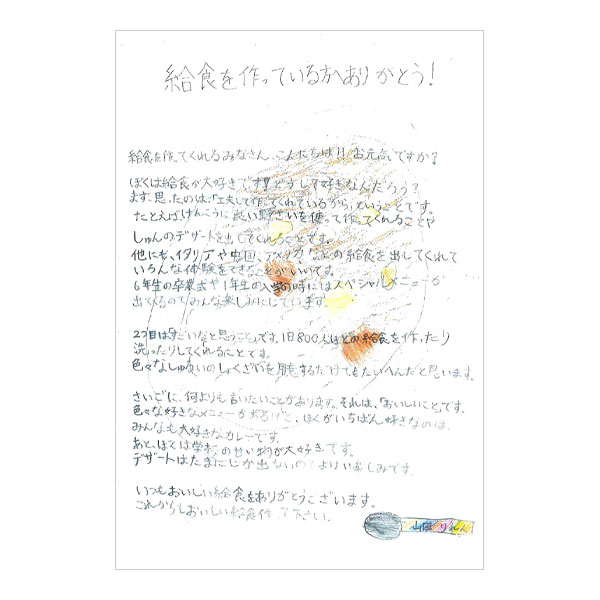 給食を作っている方へありがとう!
給食を作ってくれるみなさん、こんにちは!! お元気ですか?
ぼくは給食が大好きです!どうして好きなんだろう?
まず、思ったのは、「工夫して作ってくれているから」ということです。
たとえばけんこうに良い野さいを使って作ってくれることや
しゅんのデザートを出してくれることです。
他にも、イタリアや中国、アメリカなどの給食を出してくれて
いろんな体験をできることがいいです。
6年生の卒業式や1年生の入学の時にはスペシャルメニューが
出てくるのでみんな楽しみにしています。
2つ目は「すごいなと思うこと」です。1日800人ほどの給食を作ったり
洗ったりしてくれることです。
色々なしゅるいのしょくざいを用意するだけでもたいへんだと思います。
さいごに、何よりも言いたいことがあります。それは、「おいしいこと」です。
色々な好きなメニューがあるけど、ぼくがいちばん好きなのは、
みんなも大好きなカレーです。
あと、ぼくは学校の甘い物が大好きです。
デザートはたまにしか出ないのでより楽しみです。
いつもおいしい給食をありがとうございます。
これからもおいしい給食作って下さい。